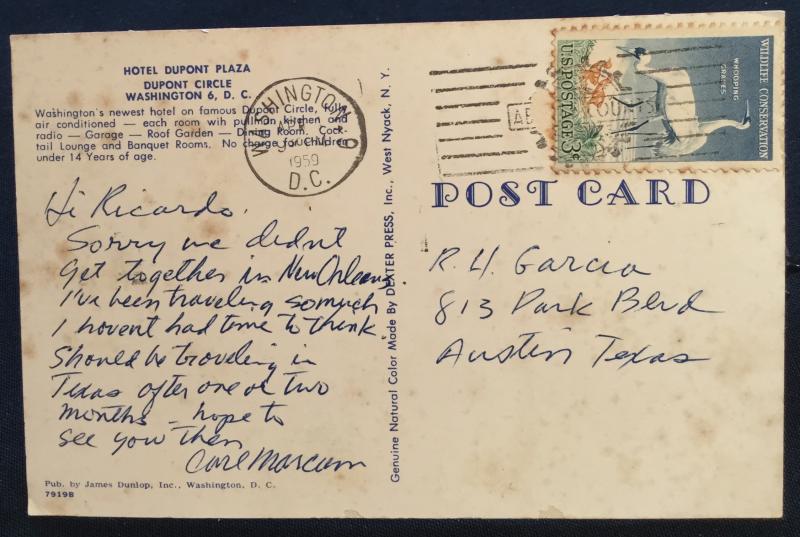 HOTEL DUPONT PLAZA
DUPONT CIRCLE
WASHINGTON 6, D. C.
Washington's newest hotel on famous Dupont Circle, fully
air conditioned — each room wih pullman kitchen and
radio — Garage — Roof Garden — Dining Room. Cock-
tail Lounge and Banquet Rooms. No charge for Children
under 14 Years of age.
WASHINGTON
1959
D.C.
Hi Ricardo,
Sorry we didn't
get together in New Orleans
I've been traveling so much
I havent had time to think.
Should be traveling in
Texas after one or two
months - hope to
see you then
Carl Marcum
Pub. by James Dunlop, Inc., Washington, D. C.
7919B
Genuine Natural Color Made By DEXTER PRESS, Inc., West Nyack, N. Y.
WILDLIFE CONSERVATION
WHOOPING
CRANES
U.S. POSTAGE 3¢
POST CARD
R. H. Garcia
813 Park Blvd
Austin Texas